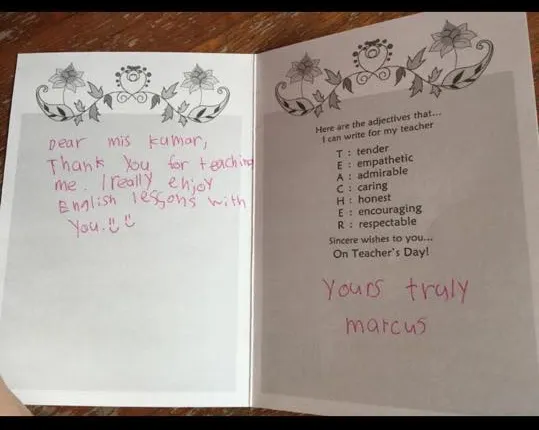 Dear mis kumar,
Thank You for teaching
me. I really enjoy
English lessons with
You.
Here are the adjectives that...
I can write for my teacher
T : tender
E : empathetic
A : admirable
C : caring
H : honest
E : encouraging
R : respectable
Sincere wishes to you...
On Teacher's Day!
Yours truly
marcus